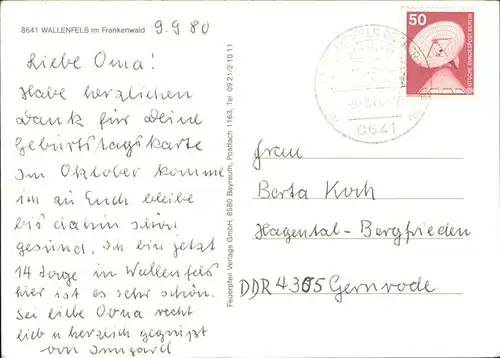 8641 WALLENFELS im Frankenwald
9.9.80
Liebe Oma!
Habe herzlichen
Dank für Deine
Geburtstagskarte
Im Oktober komme
ich zu Euch bleibe
bis dahin schön
gesund. Ich bin jetzt
14 Tage in Wallenfels
hier ist es sehr schön.
Sei liebe Oma recht
lieb u herzlich gegrüßt
von Irmgard
Feuerpfeil Verlags GmbH, 8580 Bayreuth, Postfach 1163, Tel 09 21/2 10 11
50
DEUTSCHE BUNDESPOST BERLIN
8641
Frau
Berta Koch
Hagental-Bergfrieden
DDR 4305 Gernrode